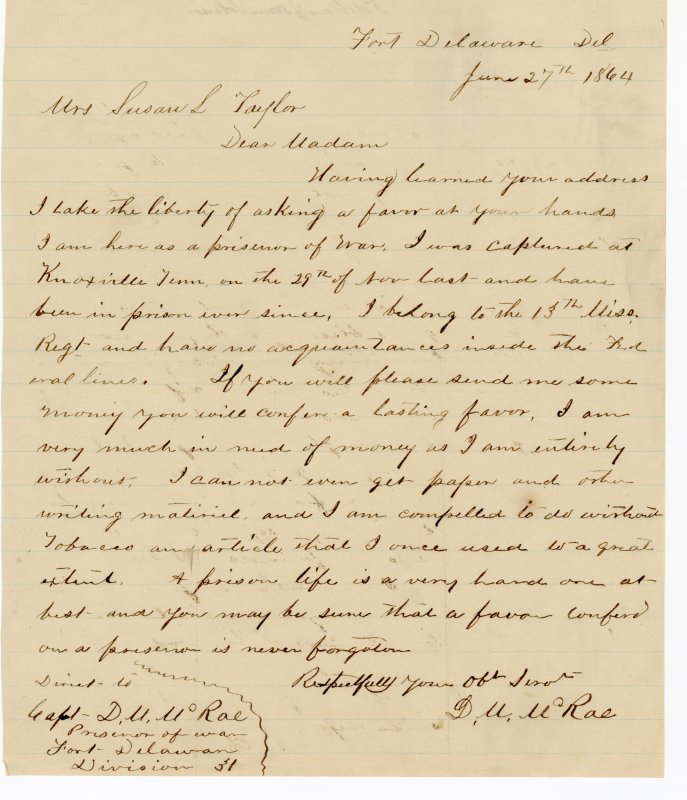 Fort Delaware Del
June 27th 1864
Mrs Susan L Taylor
Dear Madam
Having learned your address
I take the liberty of asking a favor at your hands
I am here as a prisenor of War. I was captured at
Knoxville Tenn. on the 29th of Nov last and have
been in prison ever since. I belong to the 13th Miss.
Regt and have no acquaintances inside the Fed
eral lines. If you will please send me some
money you will confer a lasting favor. I am
very much in need of money as I am entirely
without. I can not even get paper and other
writing matiriel, and I am compelled to do without
Tobacco an article that I once used to a great
extent. A prison life is a very hard one at
best and you may be sure that a favor conferd
on a prisenor is never forgoten
Respectfully Your Obt Servt
D. M. McRae
Direct to
Capt D. M. McRae
Prisenor of war
Fort Delawar
Division 31